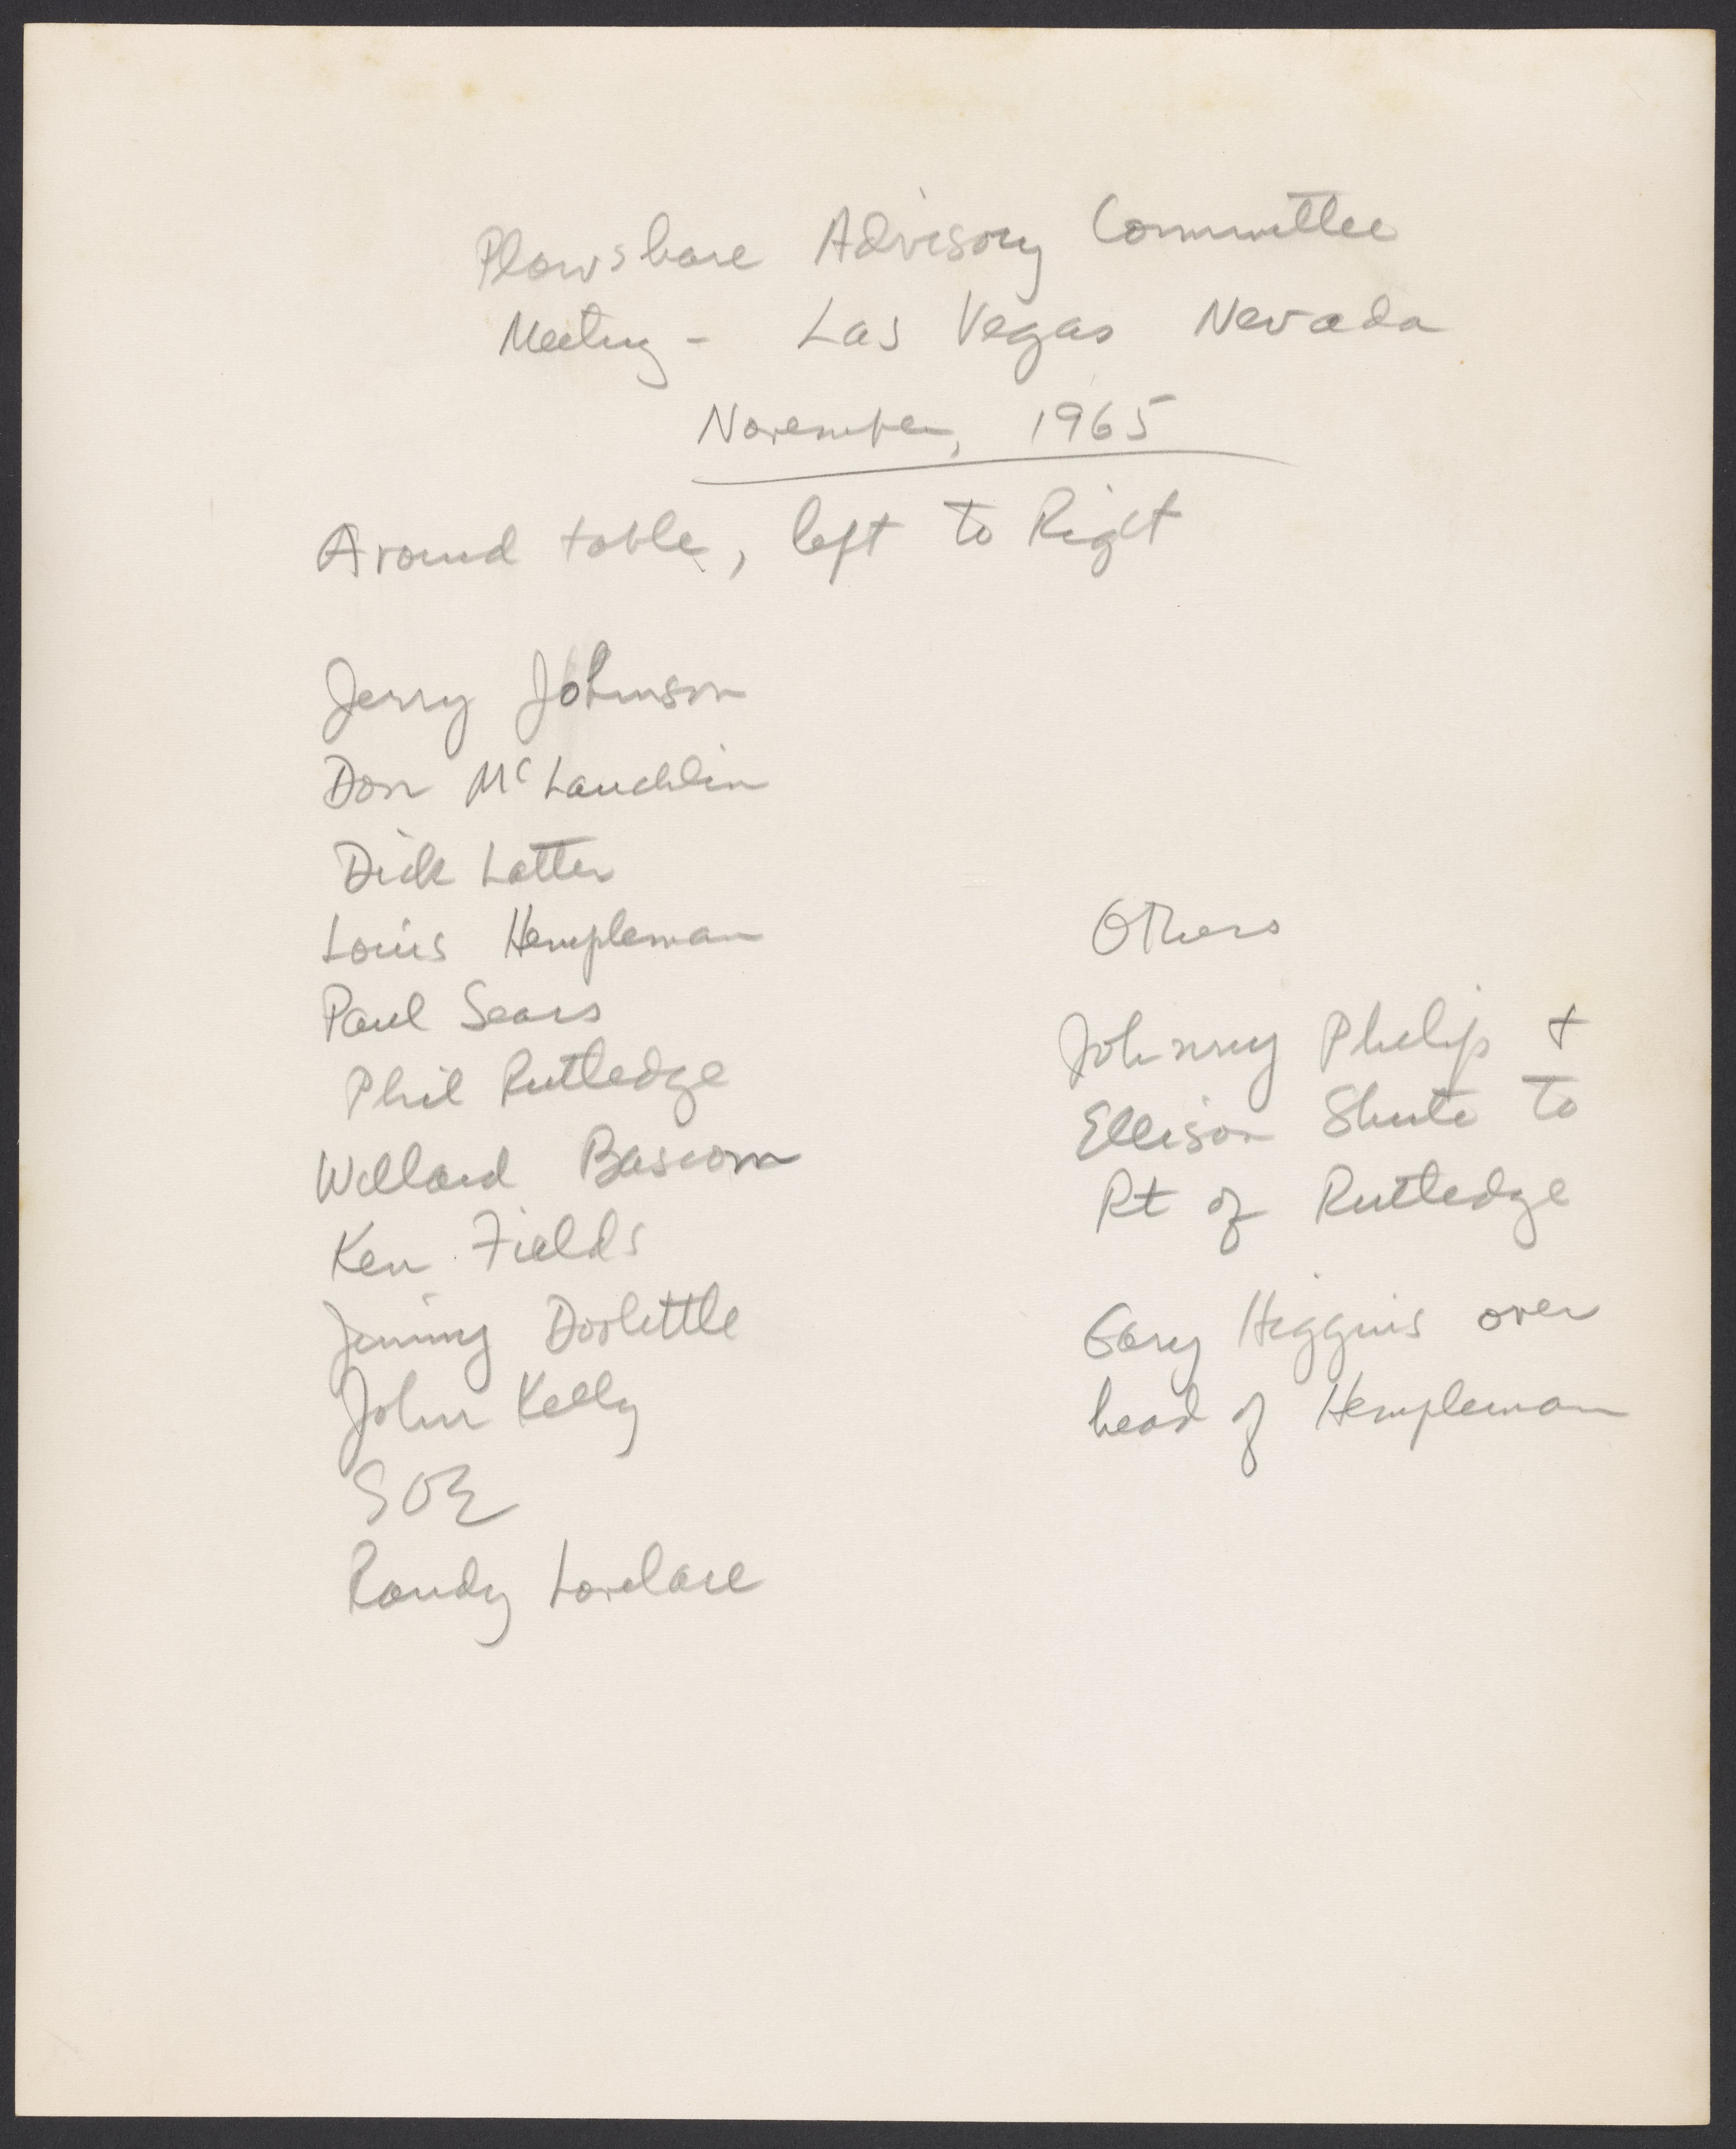 Plowshare Advisory Committee
Meeting - Las Vegas Nevada
November, 1965
Around table, left to Right
Jerry Johnson
Don McLauchlin
Dick Latter
Louis Hempleman
Paul Sears
Phil Rutledge
Willard Bascom
Ken Fields
Jimmy Doolittle
John Kelly
SOE
Randy Lovelace
Others
Johnny Philip +
Ellison Shute to
Rt of Rutledge
Gary Higgins over
head of Hempleman